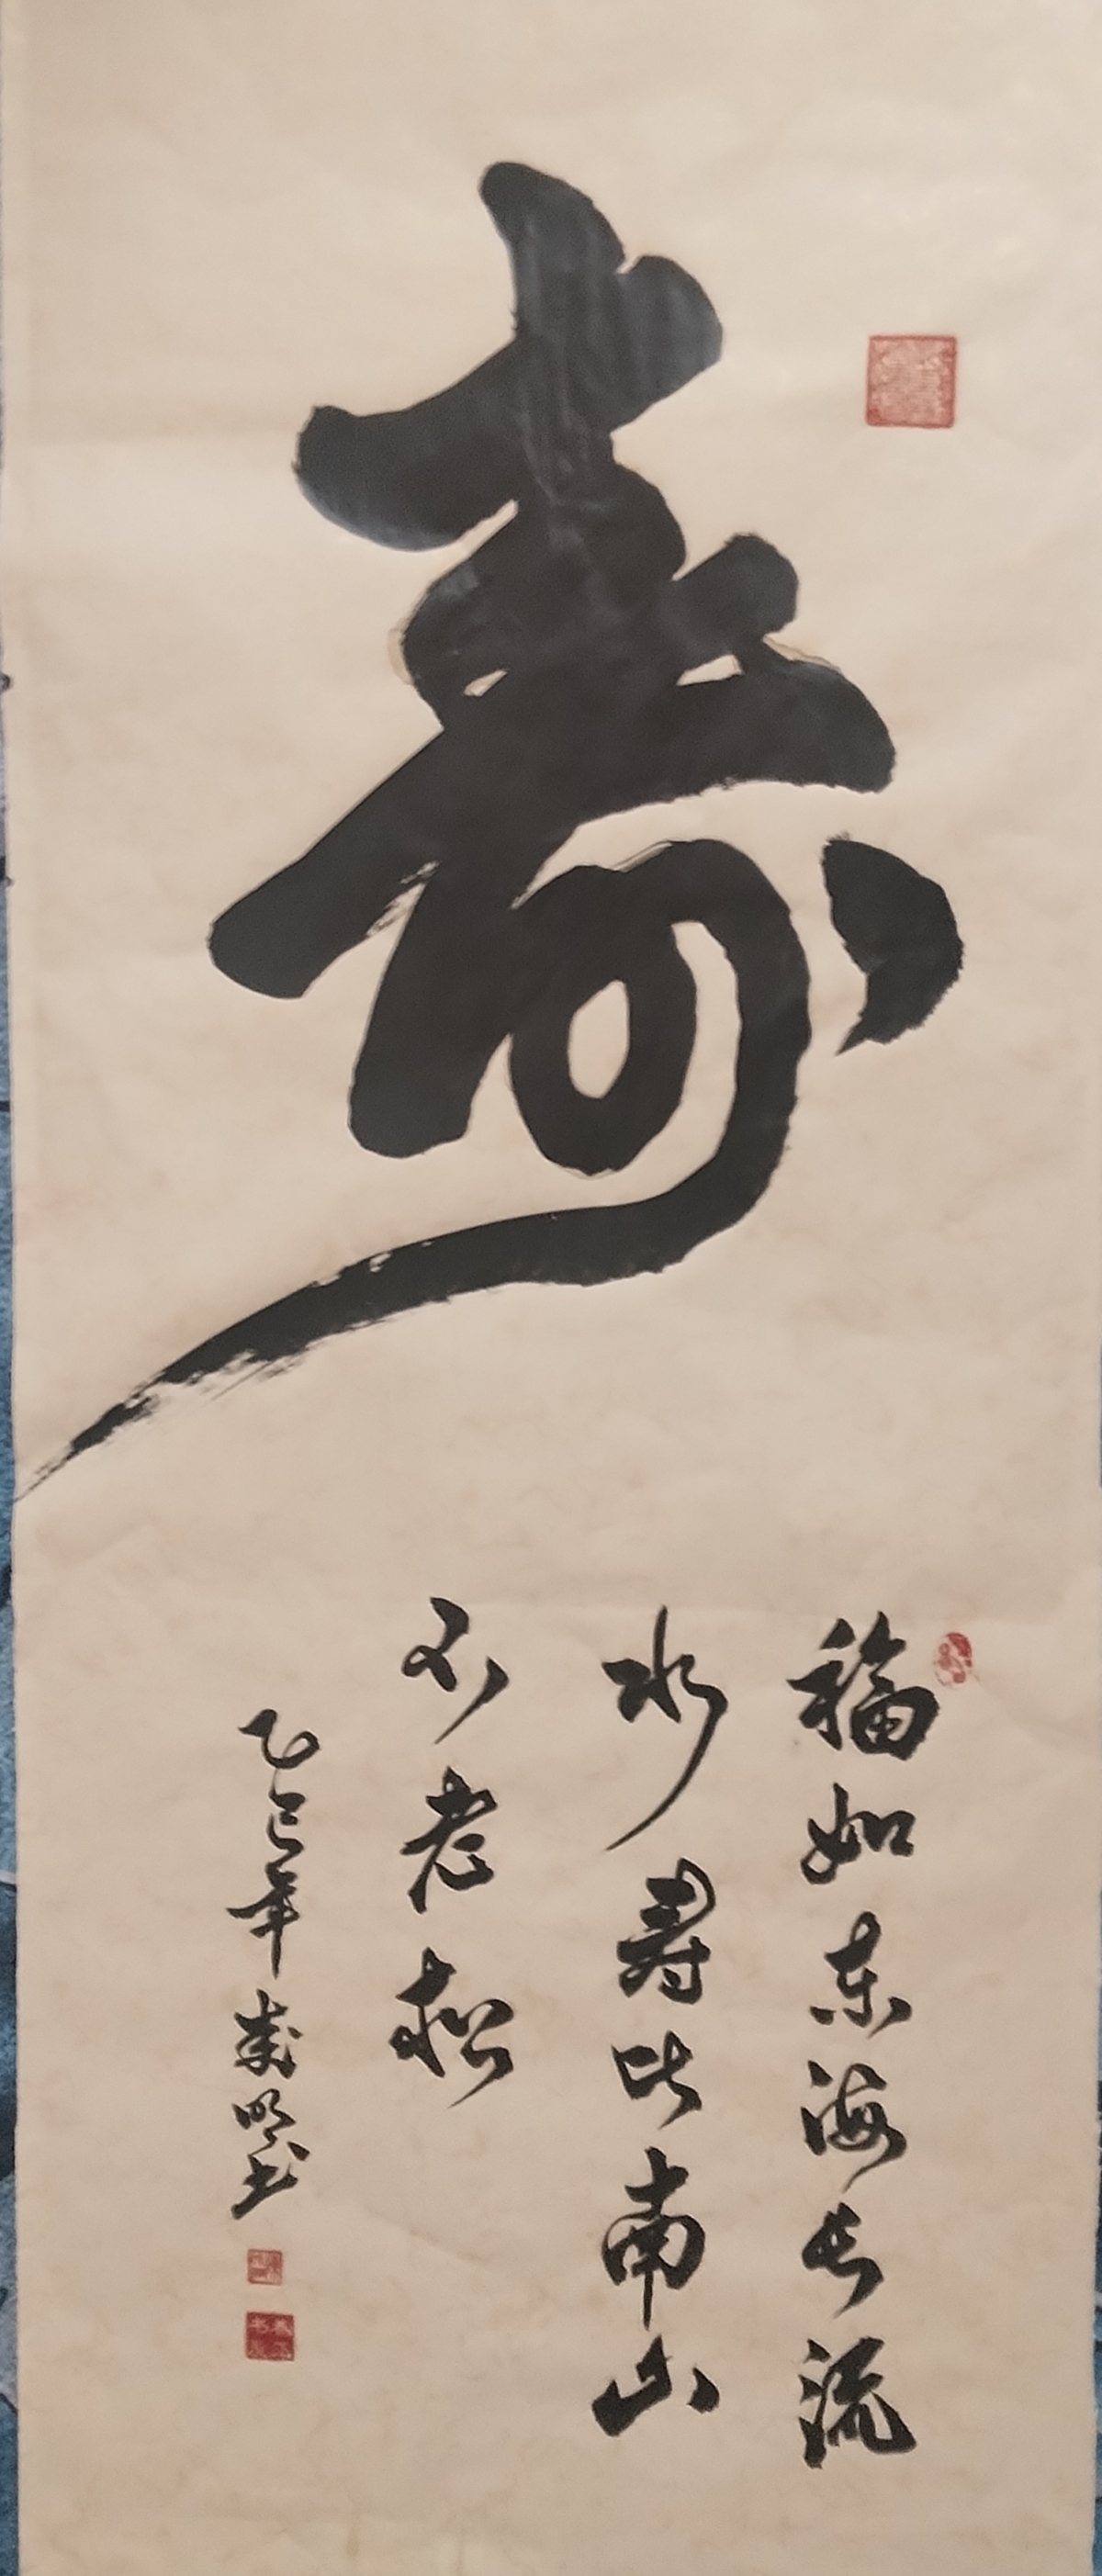 寿
福如东海长流
水寿比南山
不老松
乙巳年
明书